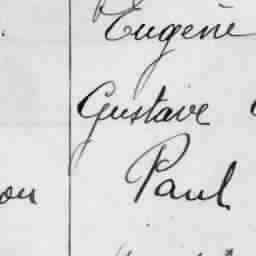 Eugène
Gustave
Paul
ou